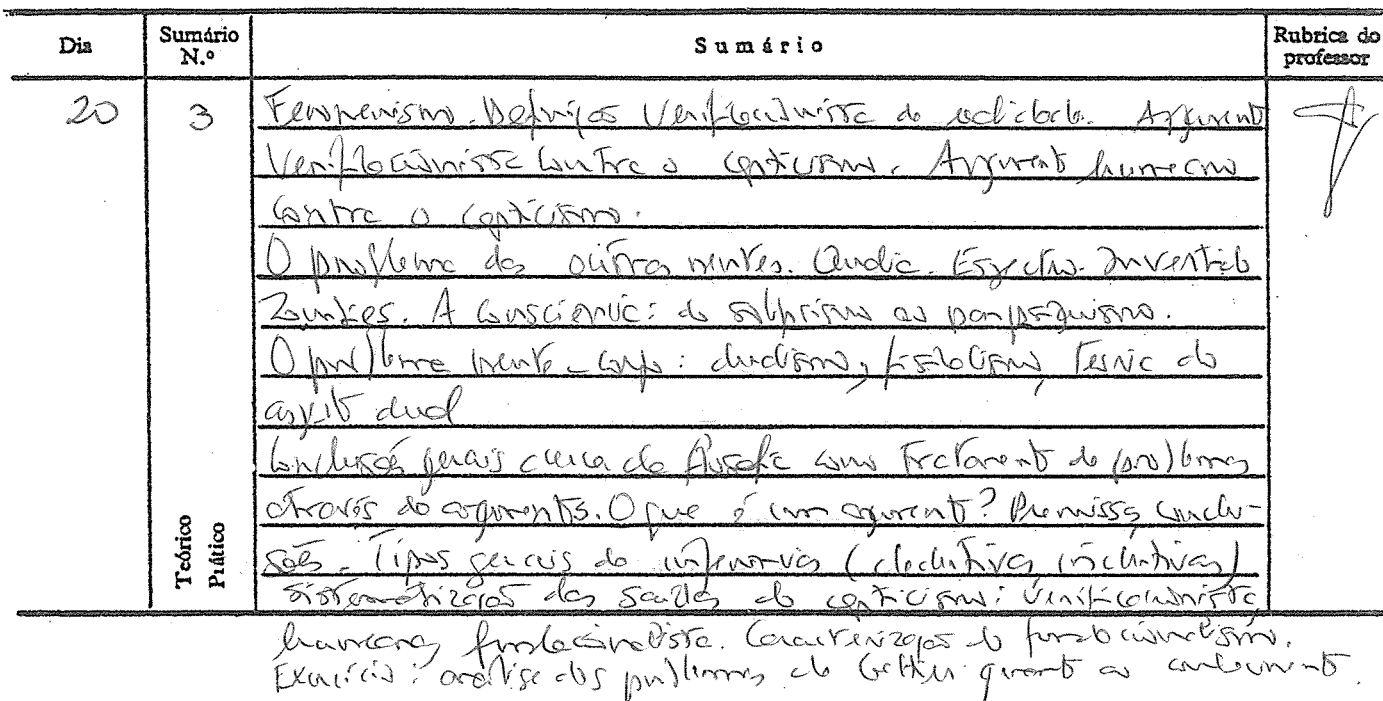 Dia Sumário N.º Sumário Rubrica do professor
20 3 Fenomenismo. Definição Verificacionista de realidade. Argumento
Verificacionista contra o cepticismo. Argumento humeano
contra o cepticismo.
O problema das outras mentes. Espectro Invertido
Zombies. A consciência: do solipsismo ao panpsiquismo.
O problema mente-corpo: dualismo, fisicalismo, teoria do
aspecto dual
Conclusões gerais acerca da filosofia como tratamento de problemas
através de argumentos. O que é um argumento? Premissas, conclu-
sões. Tipos gerais de inferências (dedutivas, indutivas)
Teórico Prático
Sistematização das saídas do cepticismo: verificacionista,
humeana, fundacionalista. Caracterização do fundacionalismo.
Exercício: análise dos problemas de Gettier quanto ao conhecimento.